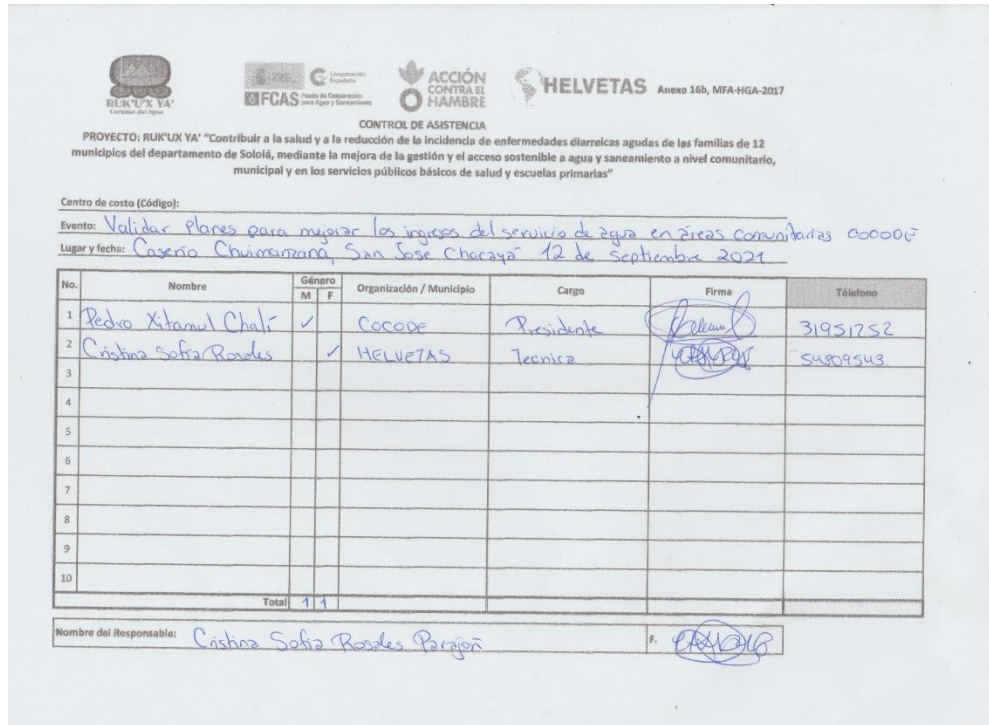 RUK'UX YA'
Corazón del Agua
Cooperación
Española
FCAS Fondo de Cooperación
para Agua y Saneamiento
ACCIÓN
CONTRA EL
HAMBRE
HELVETAS
Anexo 16b, MFA-HGA-2017
CONTROL DE ASISTENCIA
PROYECTO: RUK'UX YA' "Contribuir a la salud y a la reducción de la incidencia de enfermedades diarreicas agudas de las familias de 12
municipios del departamento de Sololá, mediante la mejora de la gestión y el acceso sostenible a agua y saneamiento a nivel comunitario,
municipal y en los servicios públicos básicos de salud y escuelas primarias"
Centro de costo (Código):
Evento: Validar Planes para mejorar los ingresos del servicio de agua en áreas comunitarias COCODE
Lugar y fecha: Caserío Chuimanzana, San Jose Chacayá 12 de septiembre 2021
No. Nombre Género M F Organización / Municipio Cargo Firma Télefono
1 Pedro Xitamul Chalí ✓ COCODE Presidente 31951252
2 Cristina Sofia Rosales ✓ HELVETAS Tecnica 54809543
3
4
5
6
7
8
9
10
Total 1 1
Nombre del Responsable: Cristina Sofia Rosales Parajón F.